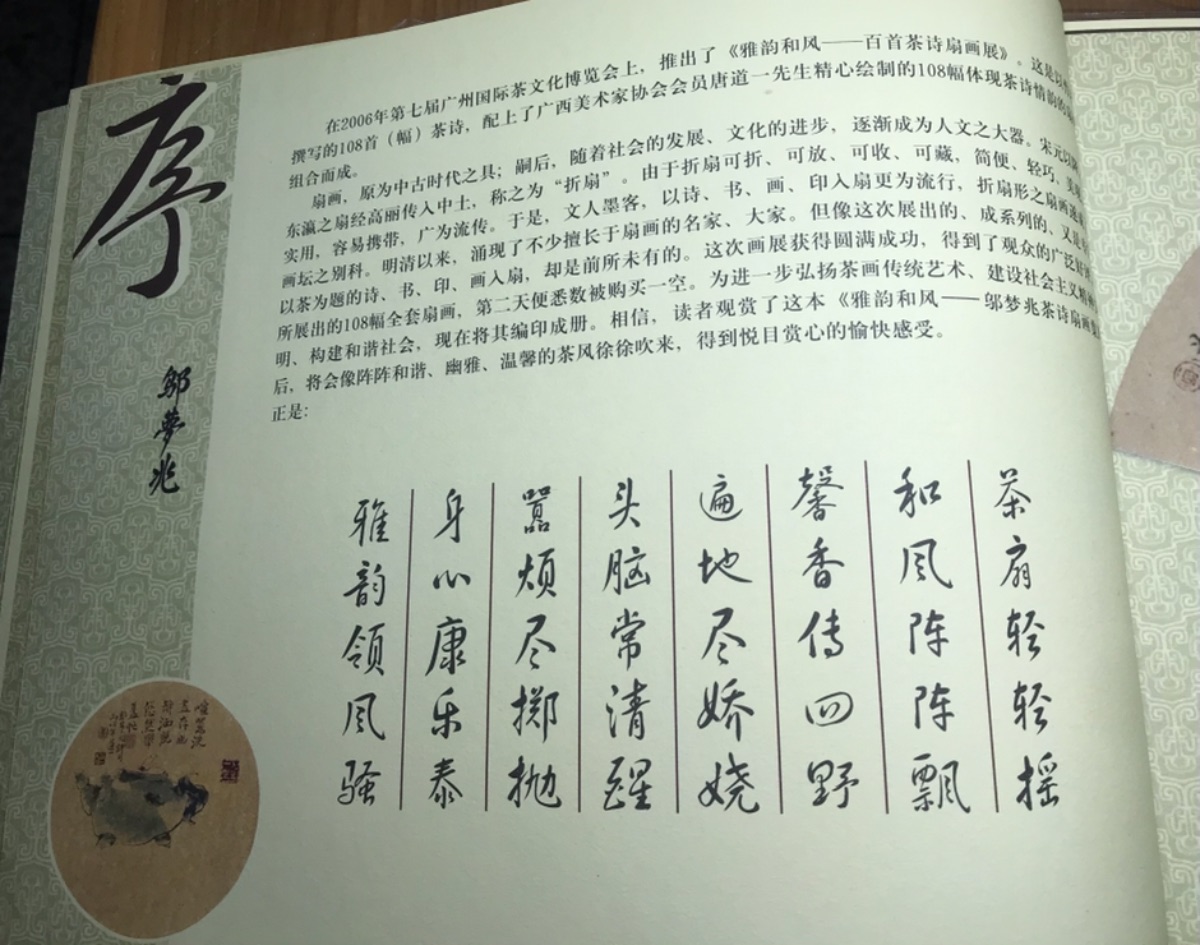 序
邬梦兆
在2006年第七届广州国际茶文化博览会上，推出了《雅韵和风——百首茶诗扇画展》。这是以
撰写的108首（幅）茶诗，配上了广西美术家协会会员唐道一先生精心绘制的108幅体现茶诗情韵的
组合而成。
扇画，原为中古时代之具；嗣后，随着社会的发展、文化的进步，逐渐成为人文之大器。宋元以
东瀛之扇经高丽传入中土，称之为“折扇”。由于折扇可折、可放、可收、可藏，简便、轻巧、
实用，容易携带，广为流传。于是，文人墨客，以诗、书、画、印入扇更为流行，折扇形之扇画
画坛之别科。明清以来，涌现了不少擅长于扇画的名家、大家。但像这次展出的、成系列的、又
以茶为题的诗、书、印、画入扇，却是前所未有的。这次画展获得圆满成功，得到了观众的广泛
所展出的108幅全套扇画，第二天便悉数被购买一空。为进一步弘扬茶画传统艺术、建设社会主义精神
明、构建和谐社会，现在将其编印成册。相信，读者观赏了这本《雅韵和风——邬梦兆茶诗扇画
后，将会像阵阵和谐、幽雅、温馨的茶风徐徐吹来，得到悦目赏心的愉快感受。
正是：
茶扇轻轻摇
和风阵阵飘
馨香传四野
遍地尽娇娆
头脑常清醒
嚣烦尽掷抛
身心康乐泰
雅韵领风骚